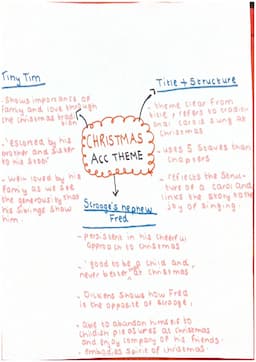 Tiny Tim
- Shows importance of
family and love through
the Christmas tradi
tion
- 'escorted by his
brother and sister
to his stool'
- Well loved by his
family as we see
the generosity that
his siblings show
him.
CHRISTMAS
ACC THEME
Title + Structure
- theme clear from
title, refers to traditi-
onal carols sung at
Christmas
- uses 5 Staves than
chapters
- reflects the struc-
ture of a carol and
links the story to the
joy of singing.
Scrooge's nephew
Fred
- persistent in his cheerful
approach to Christmas
- 'good to be a child and
never better than at Christmas'
- Dickens shows how Fred
is the opposite of Scrooge,
- able to abandon himself to
childish pleasures at Christmas
and enjoy company of his friends.
- embodies spirit of Christmas